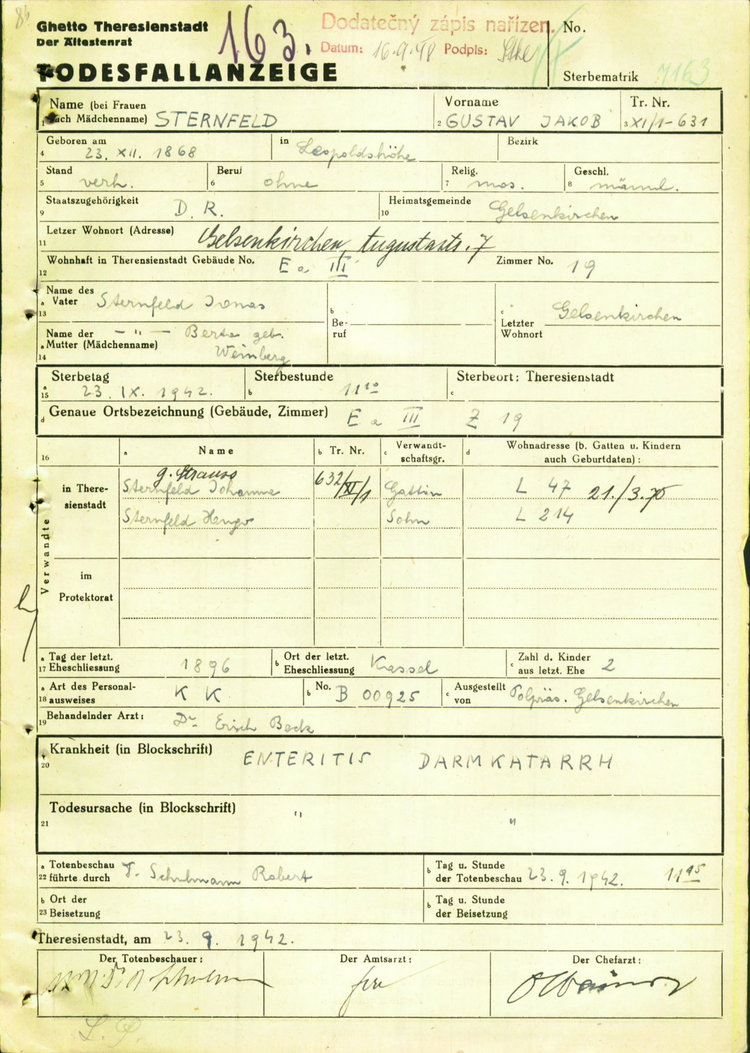 86
Ghetto Theresienstadt
Der Ältestenrat
163.
Dodatečný zápis nařízen. No.
Datum: 16.9.48 Podpis:
TODESFALLANZEIGE
Sterbematrik 7163
Name (bei Frauen
1 auch Mädchenname) STERNFELD
Vorname
2 GUSTAV JAKOB
Tr. Nr.
3 XI/1-631
Geboren am
4 23. XII. 1868
in Leopoldshöhe
Bezirk
Stand
5 verh.
Beruf
6 ohne
Relig.
7 mos.
Geschl.
8 männl.
Staatszugehörigkeit
9 D. R.
Heimatsgemeinde
10 Gelsenkirchen
Letzer Wohnort (Adresse)
11 Gelsenkirchen, Augustastr. 7
Wohnhaft in Theresienstadt Gebäude No.
12 E a III
Zimmer No. 19
Name des
a Vater Sternfeld
13
Name der – " – Berta geb.
a Mutter (Mädchenname) Weinberg
14
b
Be-
ruf
c
Letzter
Wohnort
Gelsenkirchen
a Sterbetag
15 23. IX. 1942.
Sterbestunde
b 11 10
Sterbeort: Theresienstadt
c
d Genaue Ortsbezeichnung (Gebäude, Zimmer) E a III Z 19
16
a Name
b Tr. Nr.
c Verwandt-
schaftsgr.
d Wohnadresse (b. Gatten u. Kindern
auch Geburtdaten):
Verwandte
in There-
sienstadt
g. Strauss
Sternfeld Johanna 632/XI/1 Gattin L 47 21./3.70
Sternfeld Sohn L 214
im
Protektorat
a Tag der letzt.
17 Eheschliessung 1896
b Ort der letzt.
Eheschliessung Kassel
c Zahl d. Kinder
aus letzt. Ehe 2
a Art des Personal-
18 ausweises K K
b No. B 00925
c Ausgestellt
von Polpräs. Gelsenkirchen
Behandelnder Arzt:
19 Dr Erich Beck
Krankheit (in Blockschrift)
20 ENTERITIS DARMKATARRH
Todesursache (in Blockschrift)
21 " "
a Totenbeschau
22 führte durch Dr. Robert
b Tag u. Stunde
der Totenbeschau 23.9.1942. 11 45
b Ort der
23 Beisetzung
b Tag u. Stunde
der Beisetzung
Theresienstadt, am 23. 9. 1942.
Der Totenbeschauer:
Der Amtsarzt:
Der Chefarzt: